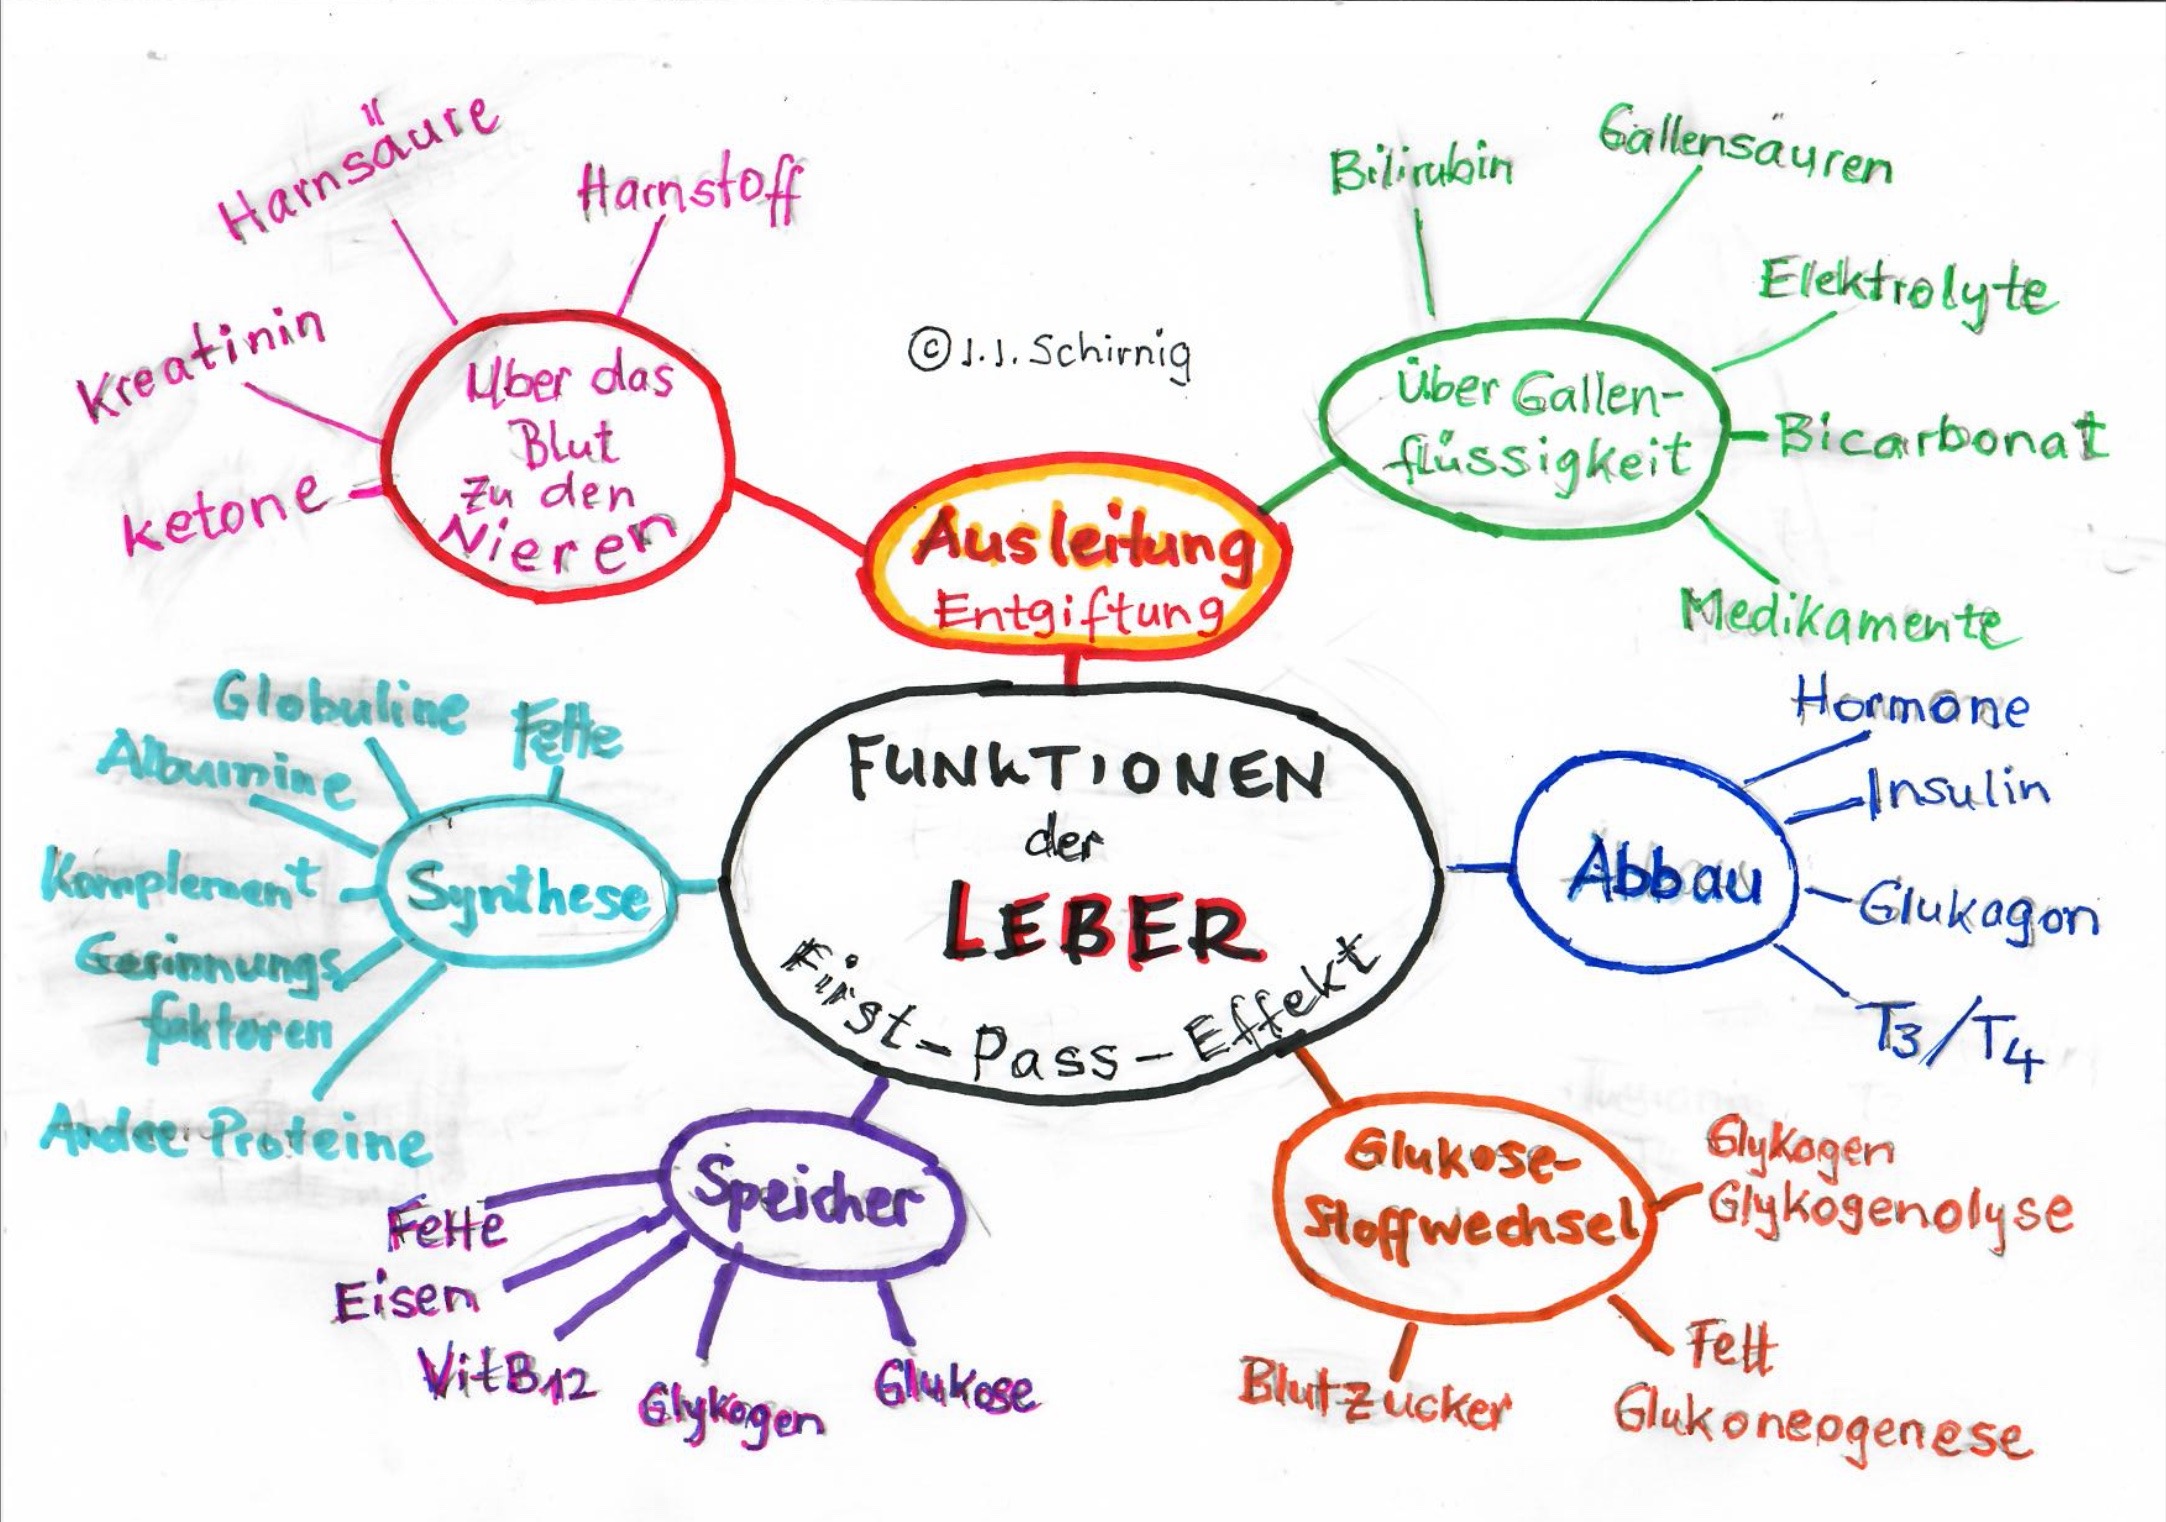 Harnsäure
Harnstoff
Kreatinin
Ketone
Über das
Blut
Zu den
Nieren
© J.J. Schirnig
Bilirubin
Gallensäuren
Elektrolyte
Bicarbonat
Medikamente
Über Gallen-
flüssigkeit
Ausleitung
Entgiftung
FUNKTIONEN
der
LEBER
First-Pass-Effekt
Globuline
Fette
Albumine
Komplement
Gerinnungs
faktoren
Andee Proteine
Synthese
Hormone
Insulin
Glukagon
T3/T4
Abbau
Speicher
Fette
Eisen
VitB12
Glykogen
Glukose
Glukose-
Stoffwechsel
Glykogen
Glykogenolyse
Fett
Glukoneogenese
Blutzucker